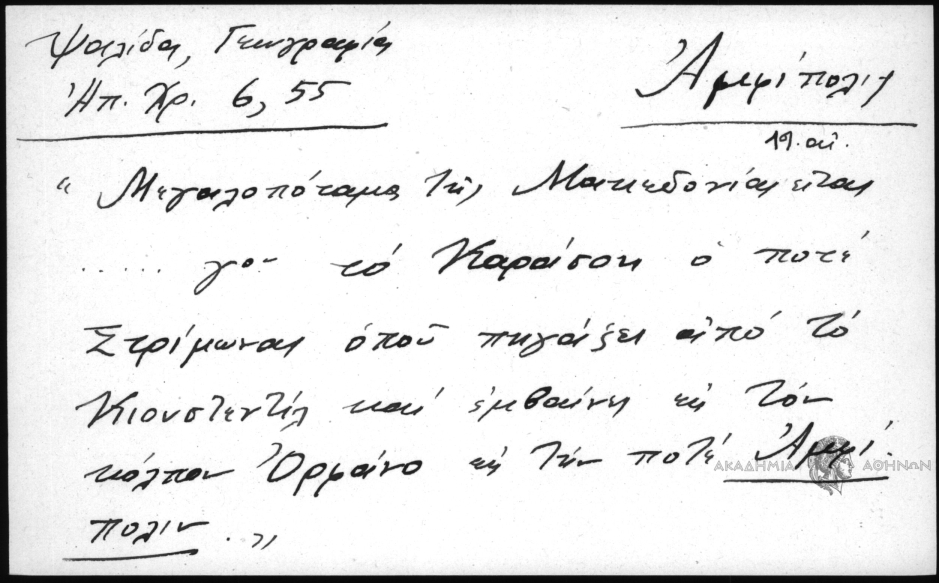 Ψαλίδα, Γεωγραφία
Ἠπ. Χρ. 6, 55
Ἀμφίπολις
19. αἰ.
“ Μεγαλοπόταμα τῆς Μακεδονίας εἶναι
...... γον τό Καράσου ὁ ποτέ
Στρίμωνας ὁποῦ πηγάζει ἀπό τό
Κιουστεντίλ καί ἐμβαίνει εἰς τόν
κόλπον Ὀρφάνο εἰς τήν ποτέ Ἀμφί-
πολιν . „
ΑΚΑΔΗΜΙΑ ΑΘΗΝΩΝ